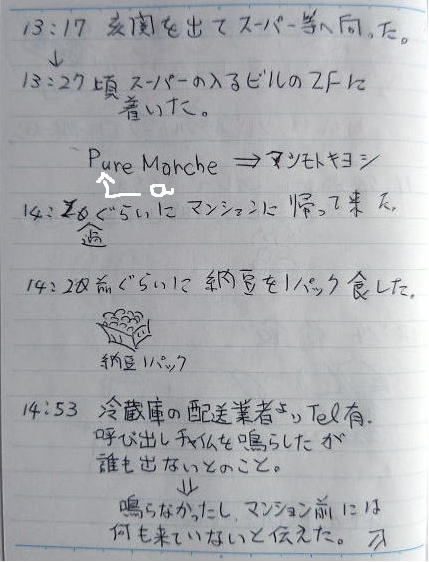 13:17 玄関を出てスーパー等へ向った。
↓
13:27頃 スーパーの入るビルの2Fに
着いた。
Pure Marche ⇒ マツモトキヨシ
a
14:20ぐらいにマンションに帰って来た。
過
14:20前ぐらいに 納豆を1パック食した。
納豆1パック
14:53 冷蔵庫の配送業者よりTel有.
呼び出しチャイムを鳴らしたが
誰も出ないとのこと。
⇓
鳴らなかったし、マンション前には
何も来ていないと伝えた。